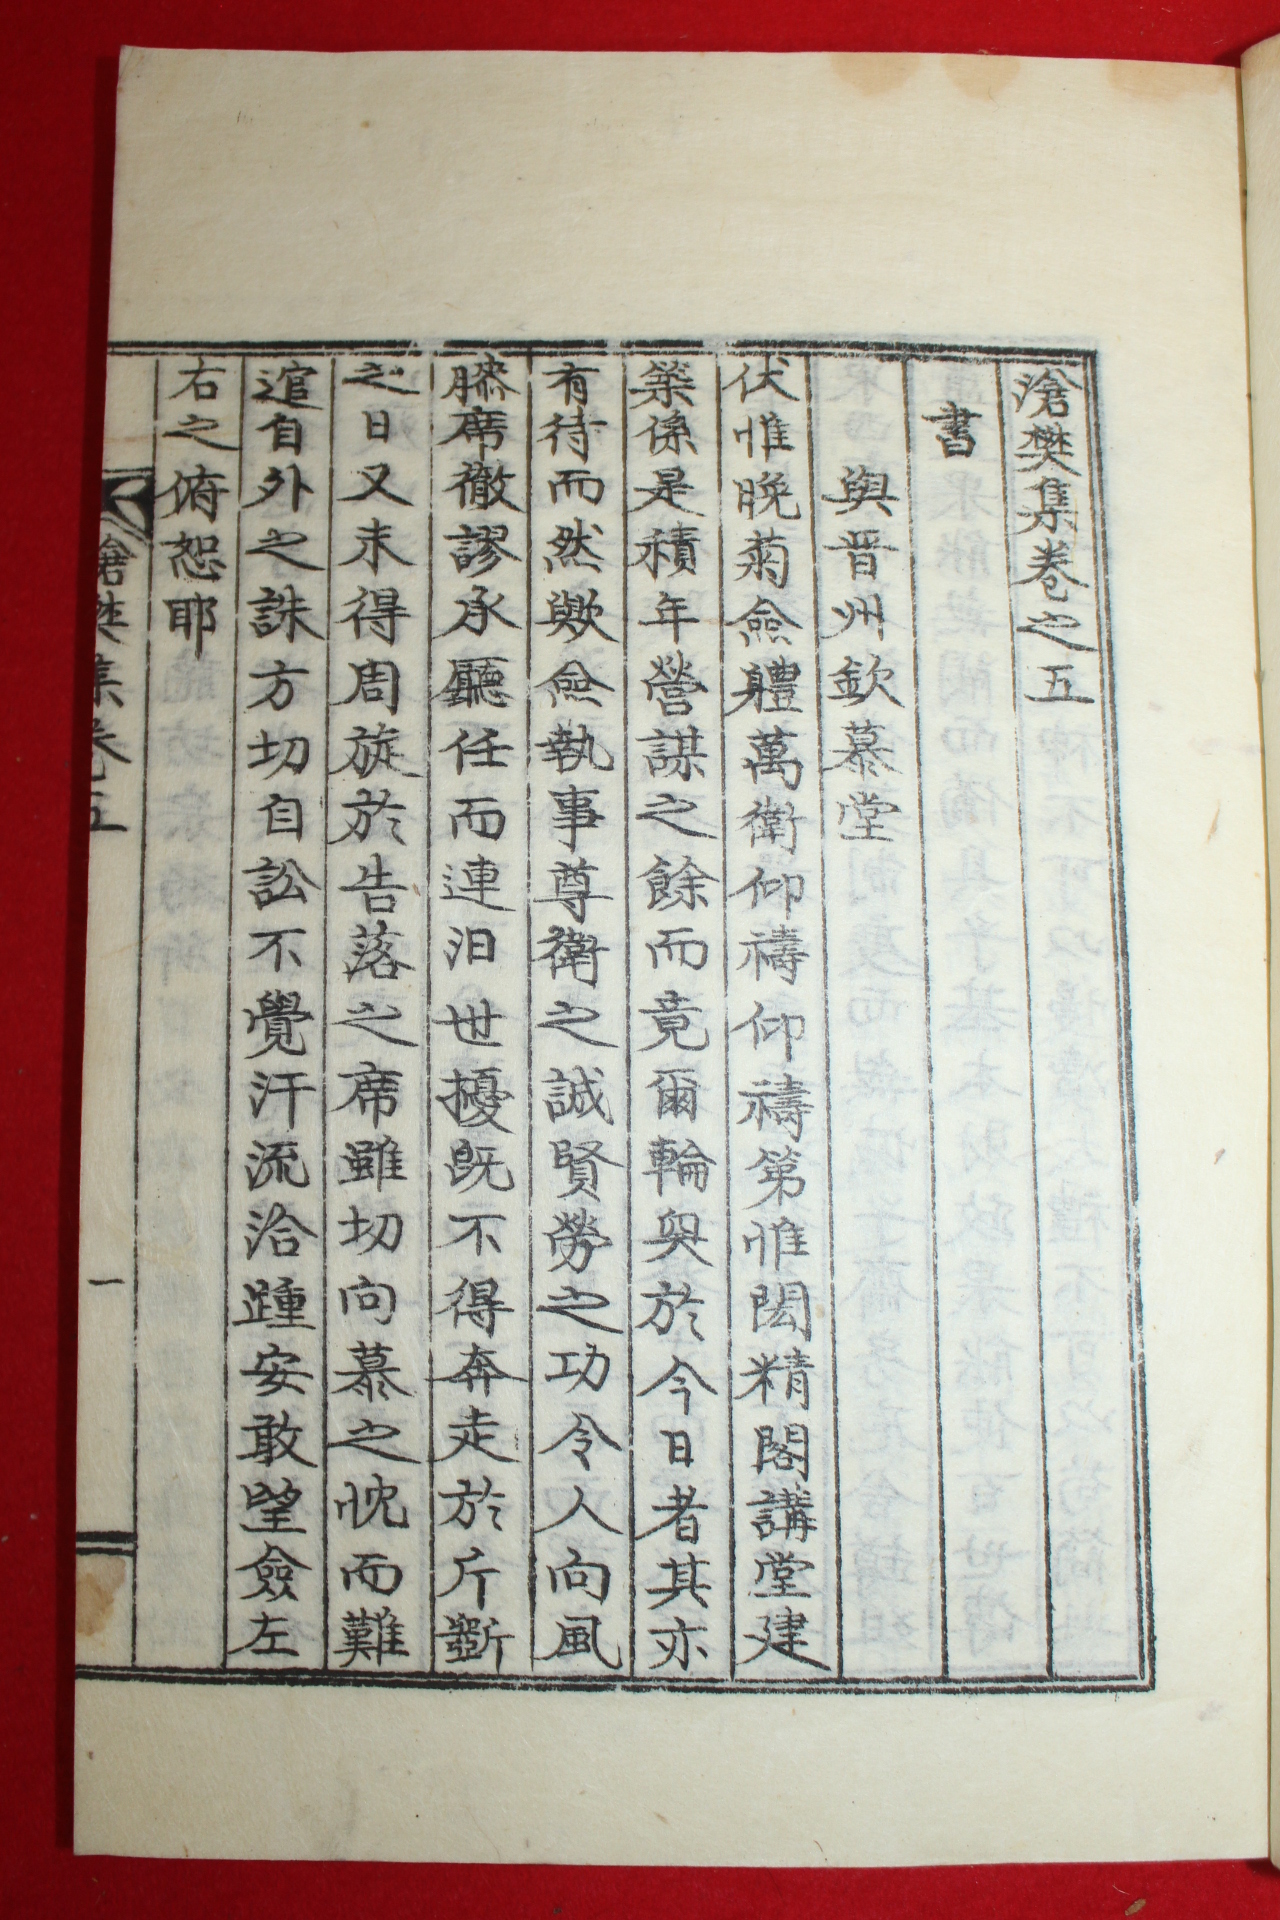 滄樊集卷之五
書
與晋州欽慕堂
伏惟晚菊僉體萬衛仰禱仰禱第惟閎精閣講堂建
築係是積年營謀之餘而竟爾輪奐於今日者其亦
有待而然歟僉執事尊衛之誠賢勞之功令人向風
席徹謬承廳任而連汩世擾既不得奔走於斤斲
之日又未得周旋於告落之席雖切向慕之忱而難
逭自外之誅方切自訟不覺汗流洽踵安敢望僉左
右之俯恕耶
滄樊集卷五
一